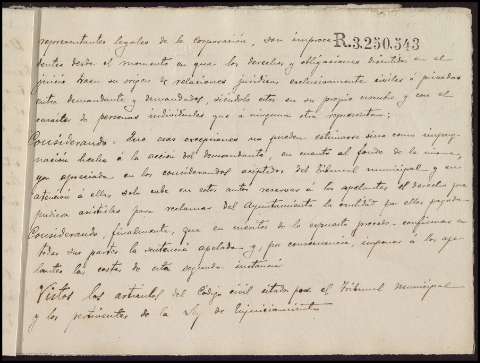 representantes legales de la Corporación, son improce- R.3.250.543
dentes desde el momento en que los derechos y obligaciones discutidos en el
juicio traen su origen de relaciones jurídicas exclusivamente civiles ó privadas
entre demandante y demandados, siéndolo estos en su propio nombre y con el
caracter de personas individuales que á ninguna otra representan;
Considerando: Que esas excepciones no pueden estimarse sino como impug-
nación hecha á la acción del demandante, en cuanto al fondo de la misma,
ya apreciada en los considerandos aceptados del Tribunal municipal y en
atención á ellas solo cabe en estos autos reservar á los apelantes el derecho que
pudiera asistirles para reclamar del Ayuntamiento la cantidad por ellos pagada.
Considerando, finalmente, que en méritos de lo expuesto procede confirmar en
todas sus partes la sentencia apelada y, por consecuencia, imponer á los ape-
lantes las costas de esta segunda instancia
Vistos los artículos del Código civil citados por el Tribunal Municipal
y los pertinentes de la Ley de Enjuiciamiento